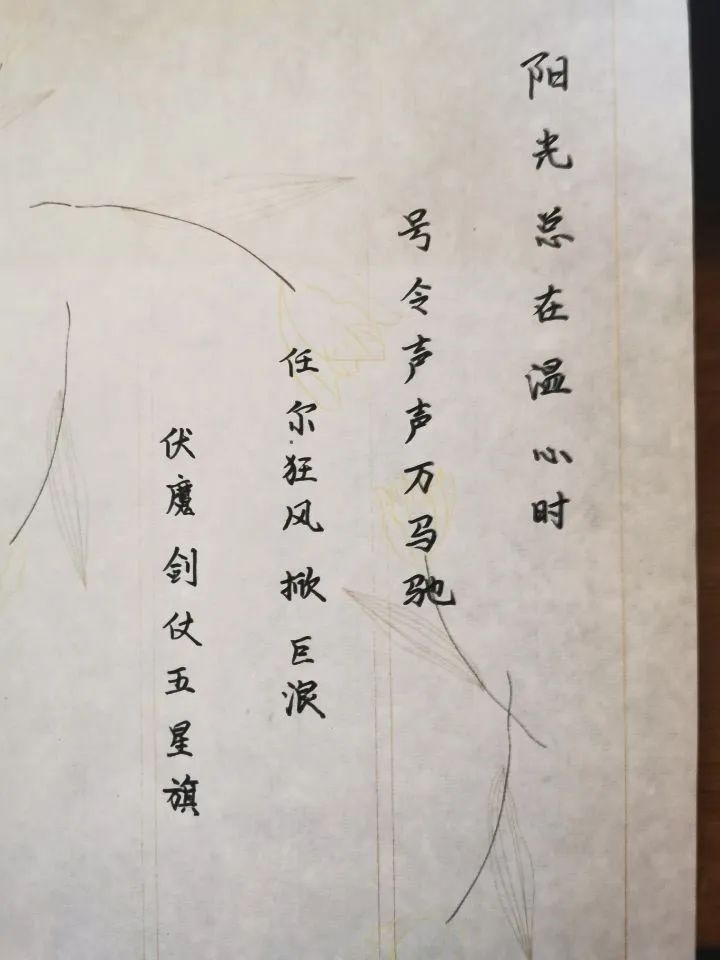 阳光总在温心时
号令声声万马驰
任尔狂风掀巨浪
伏魔剑仗五星旗